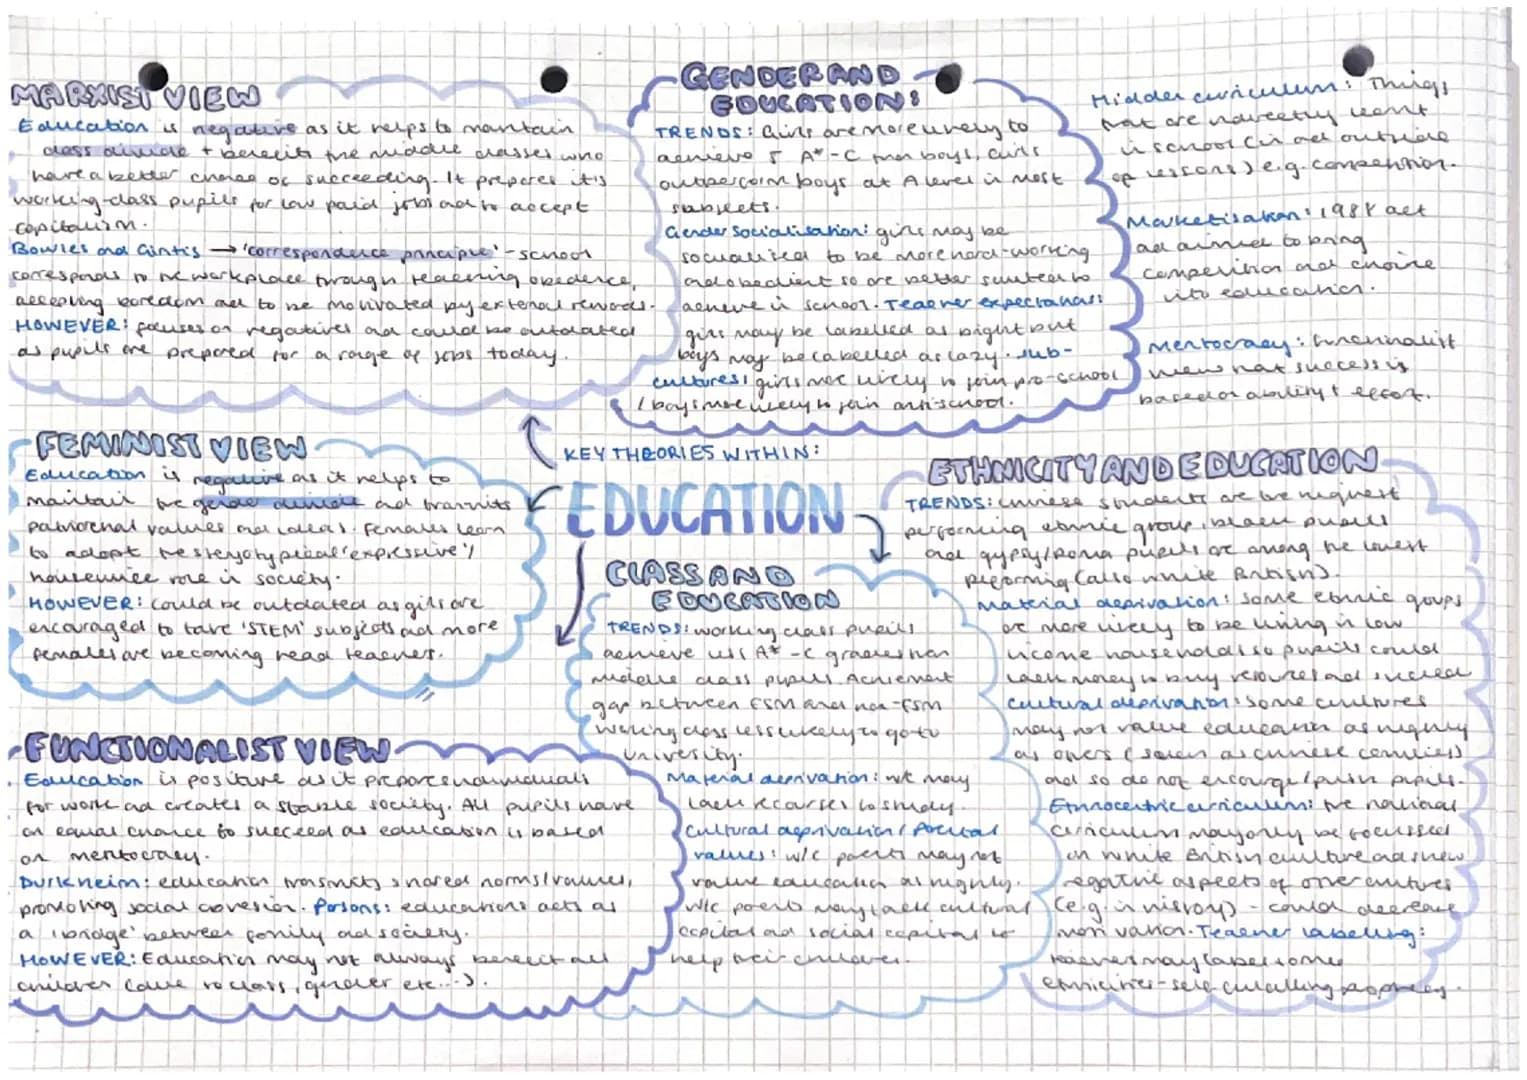 MARXIST VIEW
Education is negative as it helps to maintain
class divide + benefits the middle classes who
have a better chance of succeeding. It prepares it's
working-class pupils for low paid jobs and to accept
capitalism.
Bowles and Gintis → 'correspondence principle' - school
corresponds to the workplace through teaching obedience,
accepting boredom and to be motivated by external rewards.
HOWEVER: focuses on negatives and could be outdated
as pupils are prepared for a range of jobs today.
GENDER AND
EDUCATION:
TRENDS: Girls are more likely to
achieve 5 A*-C than boys, Girls
outperform boys at A level in most
subjects.
Gender Socialisation: girls may be
socialised to be more hard-working
and obedient so are better suited to
achieve in school. Teacher expectations:
girls may be labelled as bright but
boys may be labelled as lazy. Sub-
cultures: girls more likely to join pro-school
/ boys more likely to join anti-school.
Hidden curriculum: Things
that are indirectly learnt
in school (in and outside
of lessons) e.g. competition.
Marketisation: 1988 act
and aimed to bring
competition and choice
into education.
Meritocracy: functionalist
view that success is
based on ability + effort.
KEY THEORIES WITHIN:
EDUCATION
FEMINIST VIEW
Education is negative as it helps to
maintain the gender divide and transmits
patriarchal values and ideas. Females learn
to adopt the stereotypical 'expressive'/
housewife role in society.
HOWEVER: could be outdated as girls are
encouraged to take 'STEM' subjects and more
females are becoming head teachers.
FUNCTIONALIST VIEW
Education is positive as it prepares individuals
for work and creates a stable society. All pupils have
an equal chance to succeed as education is based
on meritocracy.
Durkheim: education transmits shared norms/values,
promoting social cohesion. Parsons: educations acts as
a 'bridge' between family and society.
HOWEVER: Education may not always benefit all
children (due to class, gender etc...).
CLASS AND
EDUCATION
TRENDS: working class pupils
achieve less A*-C grades than
middle class pupils. Achievement
gap between FSM and non-FSM
working class less likely to go to
university.
Material deprivation: w/c may
lack recourses to study.
Cultural deprivation / Parental
values: w/c parents may not
value education as highly.
w/c parents may lack cultural
capital and social capital to
help their children.
ETHNICITY AND EDUCATION
TRENDS: Chinese students are the highest
performing ethnic group, black pupils
and gypsy/Roma pupils are among the lowest
performing (also white British).
Material deprivation: Some ethnic groups
are more likely to be living in low
income households so pupils could
lack money to buy resources and succeed
Cultural deprivation: Some cultures
may not value education as highly
as others (such as Chinese families)
and so do not encourage/push pupils.
Ethnocentric curriculum: the national
curriculum may only be focussed
on white British culture and show
negative aspects of other cultures
(e.g. in history) - could decrease
motivation. Teacher labelling:
teachers may label some
ethnicities - self-fulfilling prophecy.